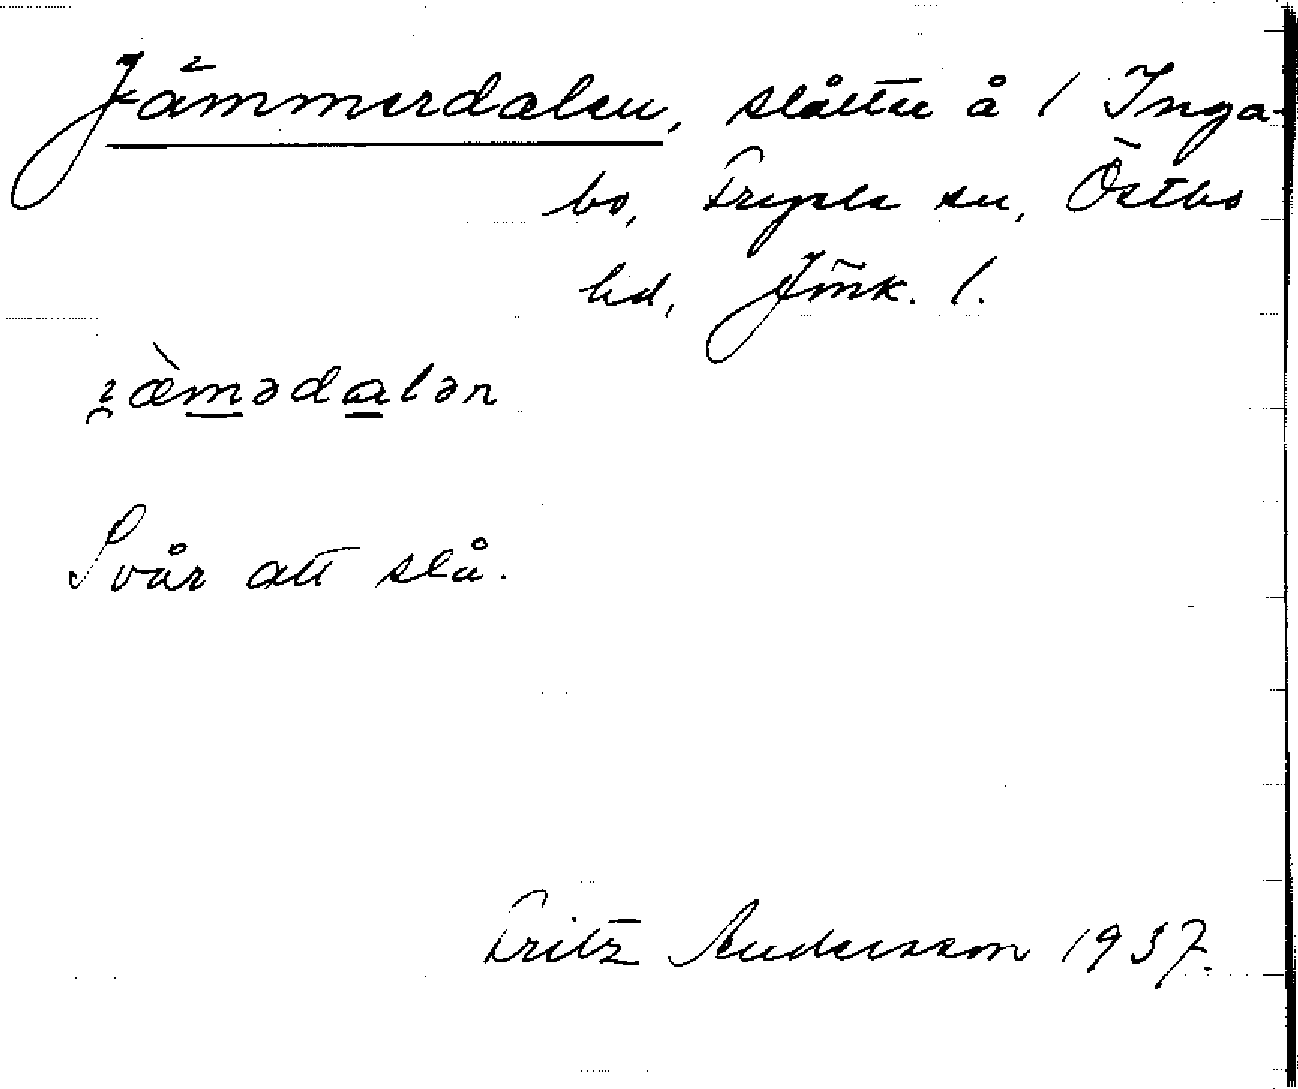 Jämmerdalen, slåtter å 1 Inga-
bo, Fryele sn, Östbo
hd, Jmk. l.
ȷæ̀mədalən
Svår att slå.
Fritz Andersson 1937.